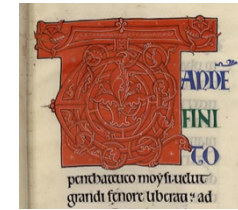 TANDE
FINI
TO
penthateuco moysi· uelut
grandi fenore liberati : ad